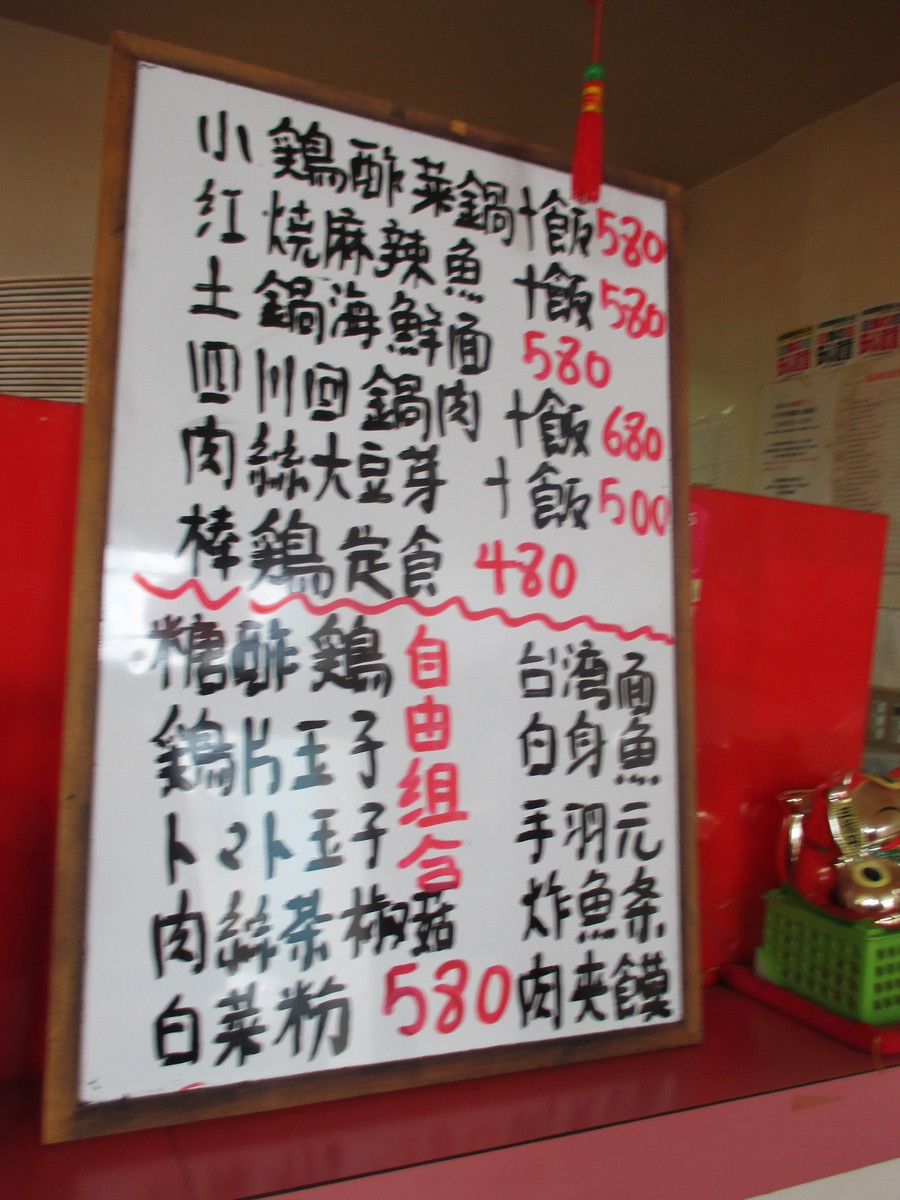 小鶏酢菜鍋+飯580
紅焼麻辣魚+飯580
土鍋海鮮面580
四川回鍋肉+飯680
肉絲大豆芽+飯500
棒鶏定食480
糖酢鶏
鶏片玉子
トマト玉子
肉絲茶椒菇
白菜粉
自由组合
580
台湾面
白身魚
手羽元
炸魚条
肉夹饃